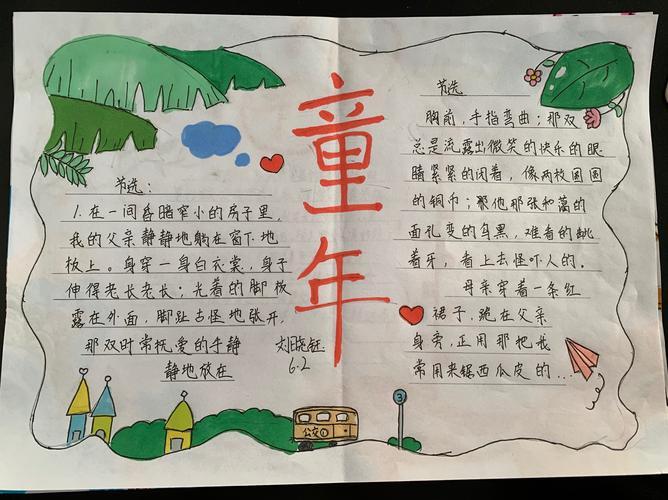 童年
节选：
1.在一间昏暗窄小的房子里，
我的父亲静静地躺在窗下地
板上。身穿一身白衣裳，身子
伸得老长老长；光着的脚板
露在外面，脚趾古怪地张开，
那双时常抚爱的手静
静地放在
刘晓钰
6.2
节选
胸前，手指弯曲；那双
总是流露出微笑的快乐的眼
睛紧紧的闭着，像两枚圆圆
的铜币；那张和蔼的
面孔变的乌黑，难看的龇
着牙，看上去怪吓人的。
母亲穿着一条红
裙子，跪在父亲
身旁，正用那把长
常用来锯西瓜皮的...
公交①
3